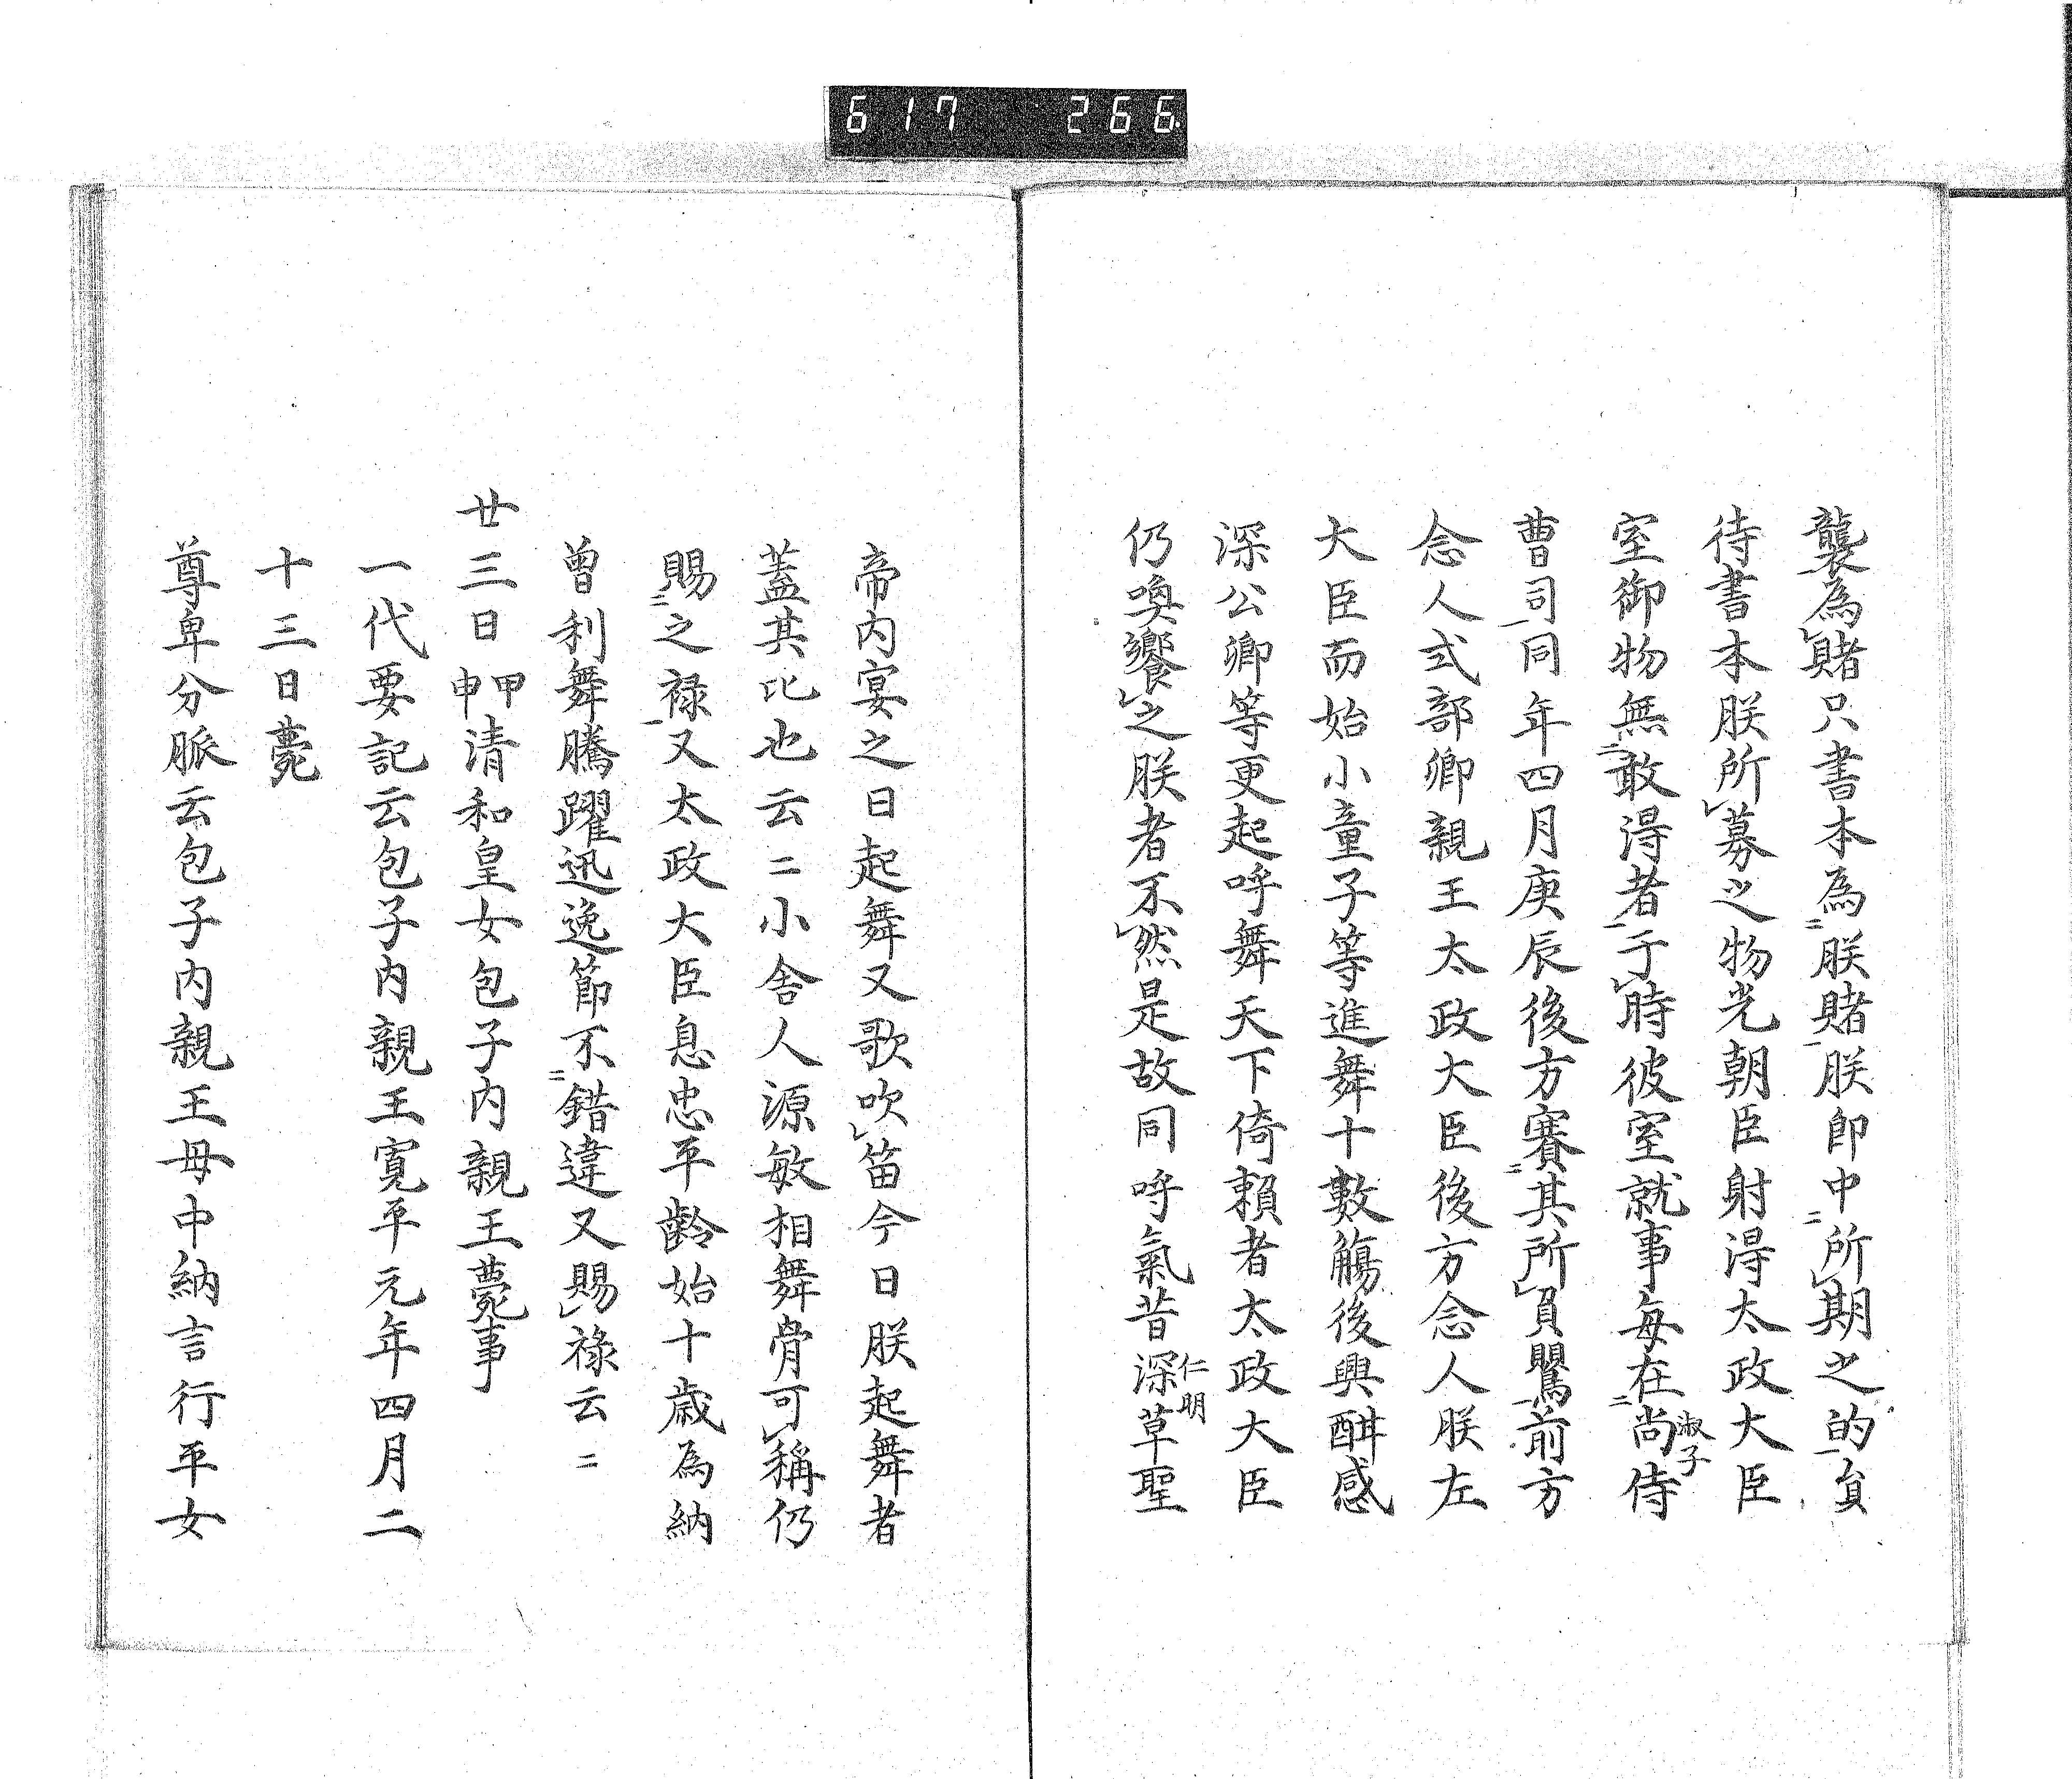 617 266
襲為賭只書本為朕賭朕即中所期之的負
待書本朕所募之物光朝臣射得太政大臣
室御物無敢得者于時彼室就事毎在尚侍
淑子
曹司同年四月庚辰後方賽其所負鸎前方
念人式部卿親王太政大臣後方念人朕左
大臣而始小童子等進舞十數觴後興酣感
深公卿等更起呼舞天下倚頼者太政大臣
仍喚饗之朕者不然是故同呼氣昔深草聖
仁明
帝内宴之日起舞又歌吹笛今日朕起舞者
蓋其比也云〻小舎人源敏相舞骨可稱仍
賜之禄又太政大臣息忠平齢始十歳為納
曾利舞騰躍迅逸節不錯違又賜禄云〻
廿三日甲申清和皇女包子内親王薨事
一代要記云包子内親王寛平元年四月二
十三日薨
尊卑分脈云包子内親王母中納言行平女